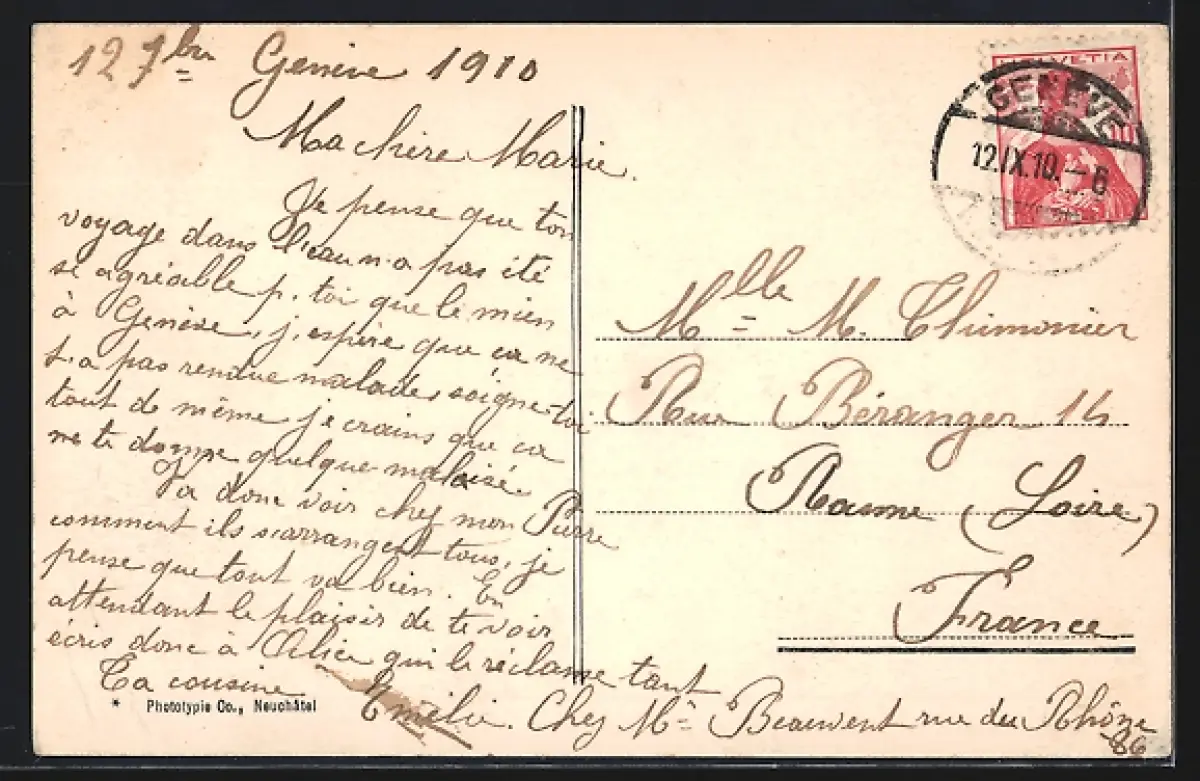 12 7bre Genève 1910
Ma chère Marie.
Je pense que ton
voyage dans l'eau n'a pas été
si agréable p. toi que le mien
à Genève, j'espère que ça ne
t'a pas rendue malade, soigne-toi
tout de même je crains que ça
ne te donne quelque malaise.
Va donc voir chez mon Pierre
comment ils s'arrangent tous, je
pense que tout va bien. En
attendant le plaisir de te voir
écris donc à Alice qui le réclame tant
Ta cousine
Emélie. Chez Mr Beauvent rue du Rhône
86
* Phototypie Co., Neuchâtel
HELVETIA
10
GENÈVE
12.IX.10.–6
Mlle M. Thimonier
Rue Béranger 14
Roanne (Loire)
France